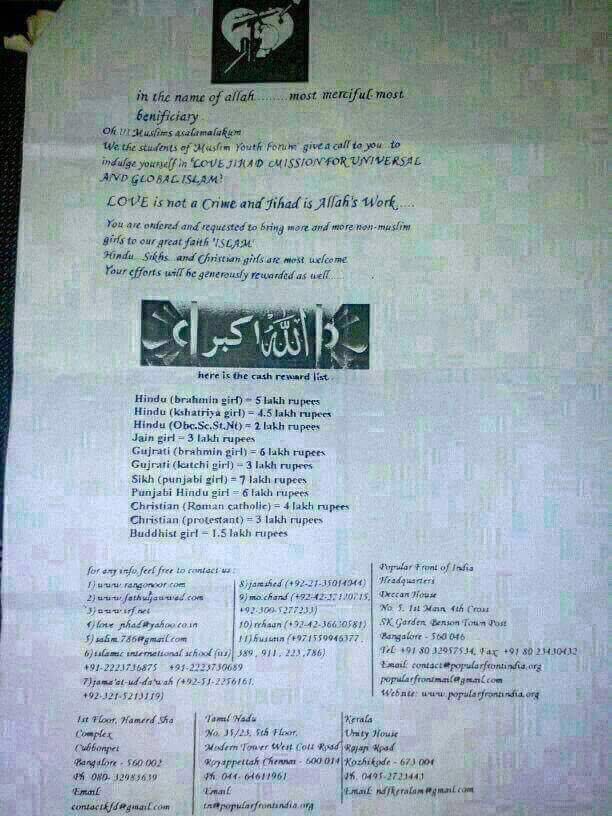 in the name of allah.........most merciful most
benificiary
Oh !!! Muslims asalamalakum
We the students of Muslim Youth Forum give a call to you to
indulge yourself in 'LOVE JIHAD (MISSION FOR UNIVERSAL
AND GLOBAL ISLAM'
LOVE is not a Crime and Jihad is Allah's Work....
You are ordered and requested to bring more and more non-muslim
girls to our great faith 'ISLAM'
Hindu.. Sikhs..and Christian girls are most welcome
Your efforts will be generously rewarded as well.....
الله اكبر
here is the cash reward list
Hindu (brahmin girl) = 5 lakh rupees
Hindu (kshatriya girl) = 4.5 lakh rupees
Hindu (Obc.Sc.St.Nt) = 2 lakh rupees
Jain girl = 3 lakh rupees
Gujrati (brahmin girl) = 6 lakh rupees
Gujrati (katchi girl) = 3 lakh rupees
Sikh (punjabi girl) = 7 lakh rupees
Punjabi Hindu girl = 6 lakh rupees
Christian (Roman catholic) = 4 lakh rupees
Christian (protestant) = 3 lakh rupees
Buddhist girl = 1.5 lakh rupees
for any info,feel free to contact us :
1) www.rangonoor.com
2) www.fathuljawwad.com
3) www.irf.net
4) love_jihad@yahoo.co.in
5) salim.786@gmail.com
6) islamic international school (iis)
+91-2223736875 +91-2223730689
7) jama'at-ud-da'wah (+92-51-2256161,
+92-321-5213119)
8) jamshed (+92-21-35014944)
9) mo.chand (+92-42-
+92-300-5277233)
10) rehaan (+92-42-36630581)
11) hussain (+971559946377 ,
389 , 911 , 223 ,786)
Popular Front of India
Headquarters
Deccan House
No. 5, 1st Main, 4th Cross
SK Garden, Benson Town Post
Bangalore - 560 046
Tel: +91 80 32957534, Fax: +91 80 23430432
Email: contact@popularfrontindia.org
popularfrontmail@gmail.com
Website: www.popularfrontindia.org
1st Floor, Hameed Sha
Complex
Cubbonpet
Bangalore - 560 002
Ph: 080- 32983639
Email:
contactkfd@gmail.com
Tamil Nadu
No. 35/23, 5th Floor,
Modern Tower West Cott Road
Royappettah Chennai - 600 014
Ph: 044- 64611961
Email:
tn@popularfrontindia.org
Kerala
Unity House
Rajaji Road
Kozhikode - 673 004
Ph: 0495-2723443
Email: ndfkeralam@gmail.com